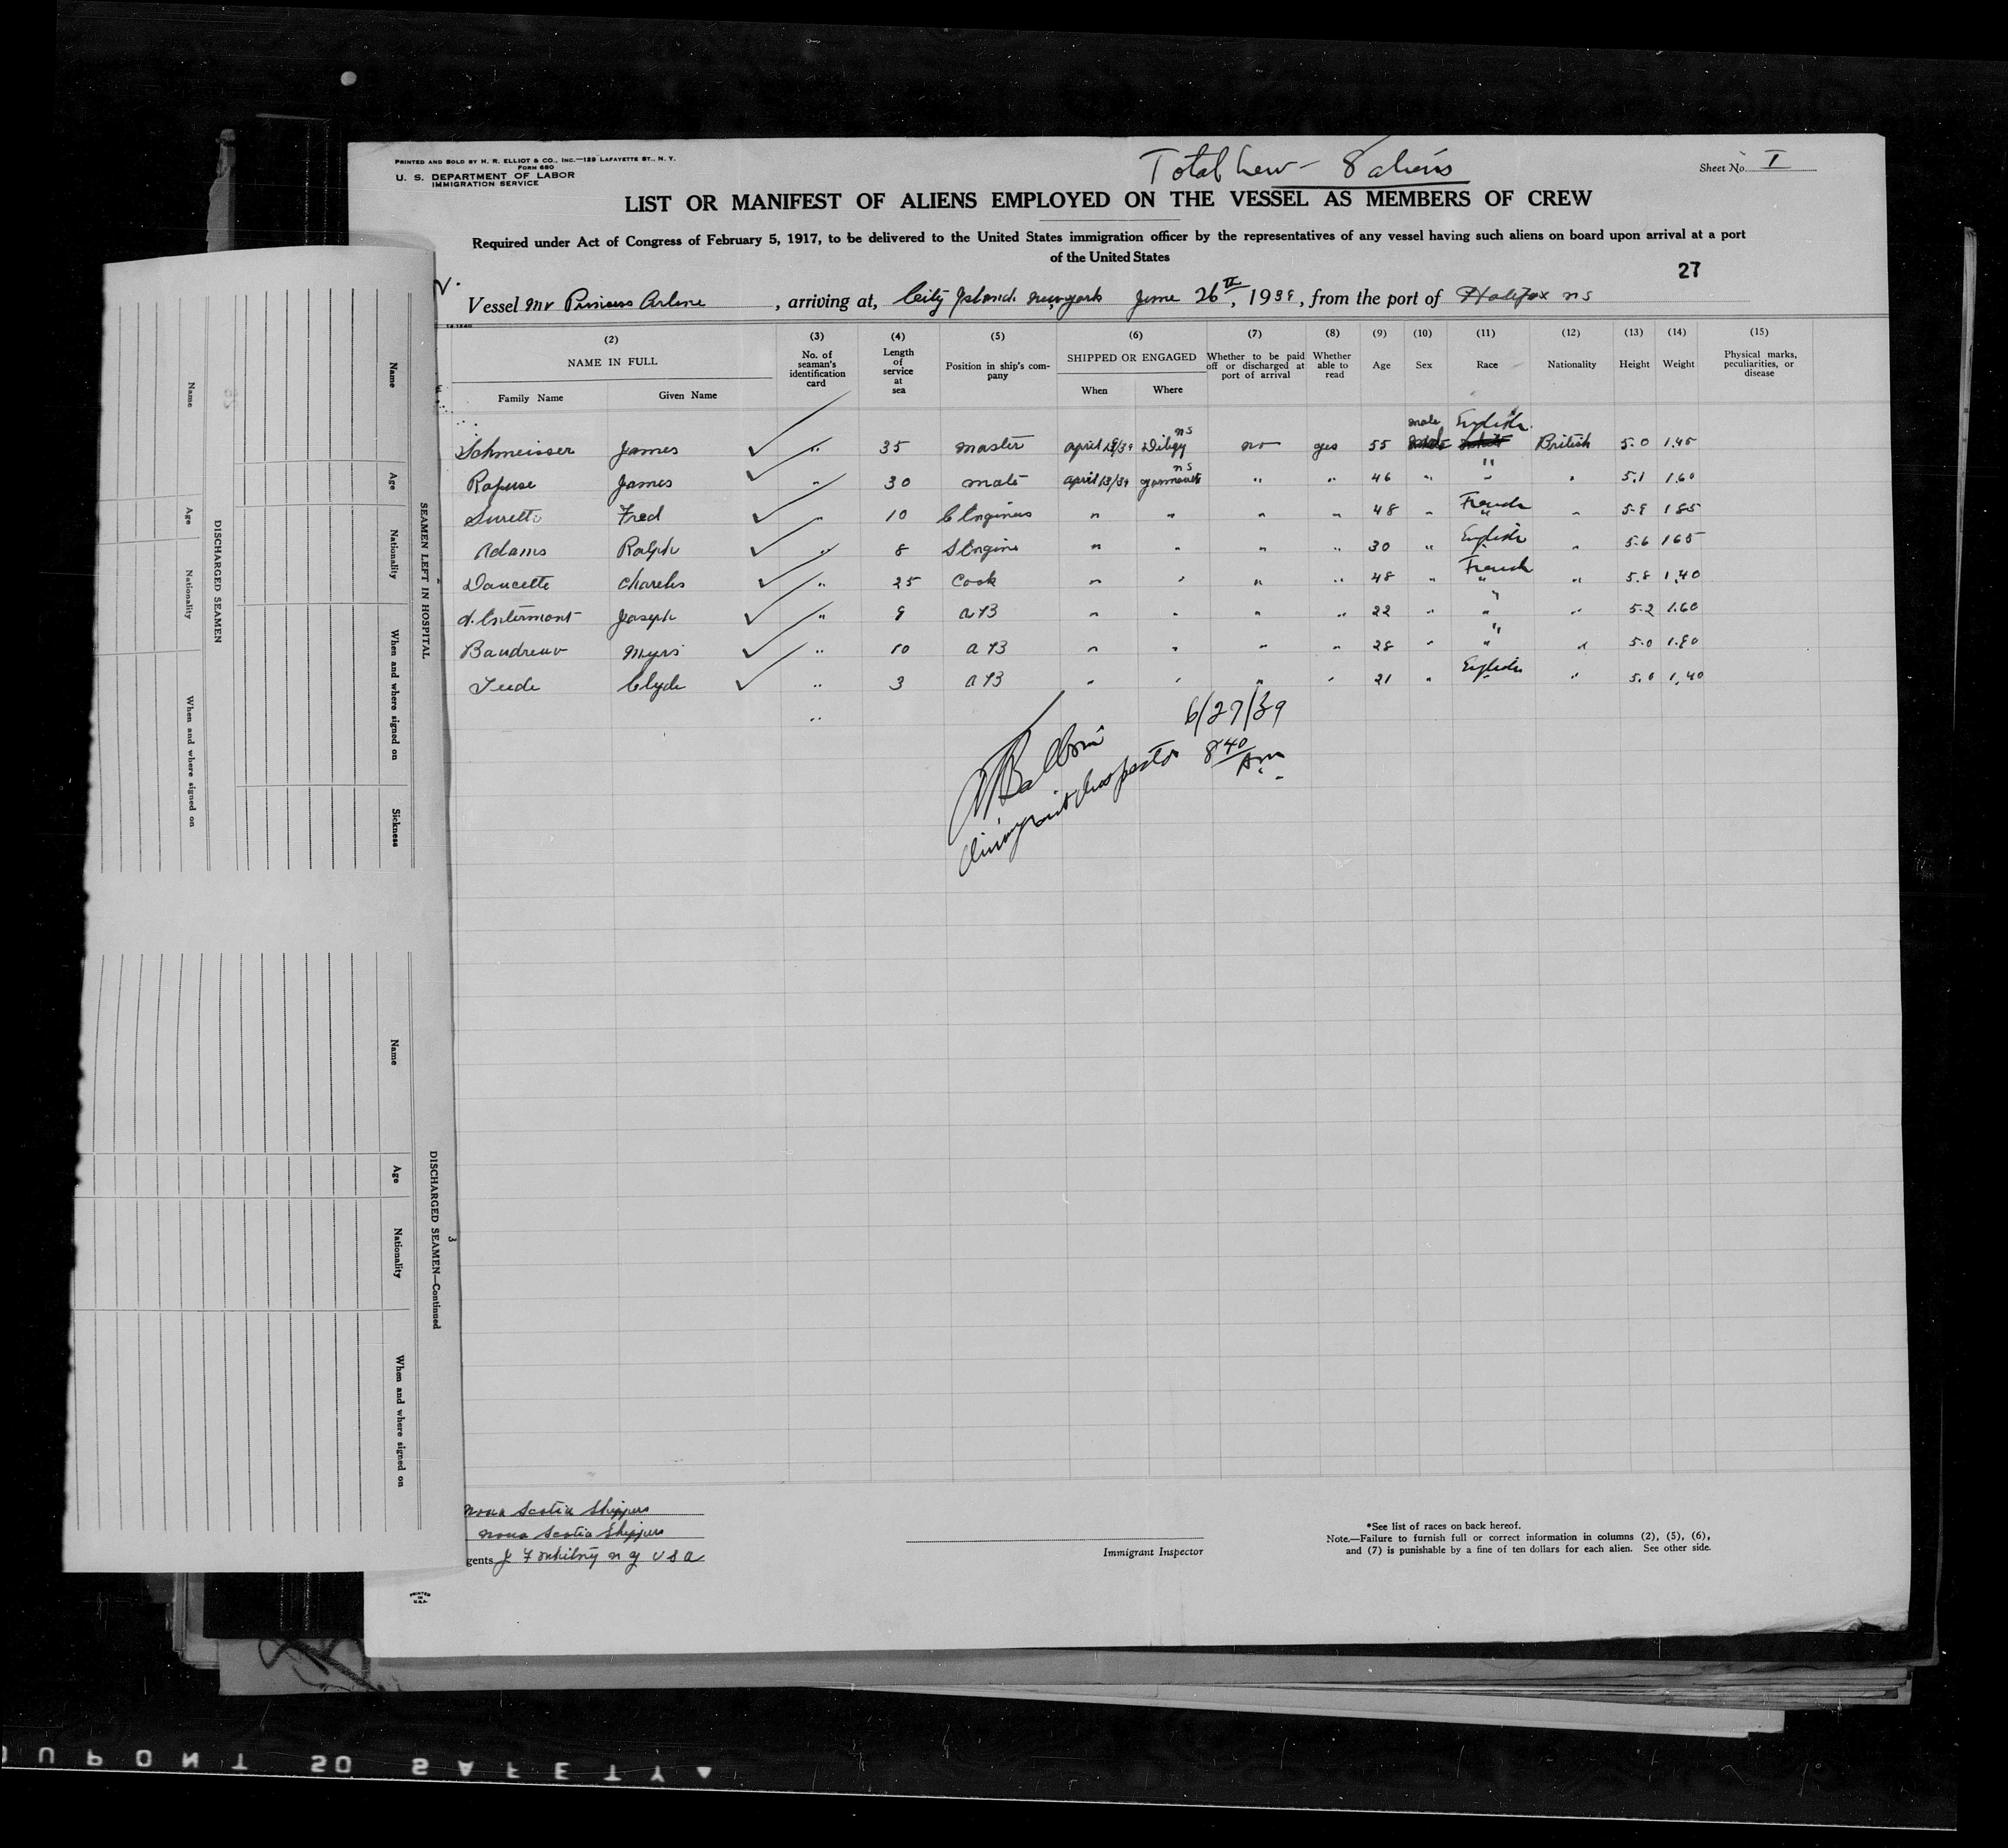 PRINTED AND SOLD BY H. R. ELLIOT & CO., INC.—129 LAFAYETTE ST., N. Y.
FORM 680
U. S. DEPARTMENT OF LABOR
IMMIGRATION SERVICE
Total Crew - 8 aliens
Sheet No. I
LIST OR MANIFEST OF ALIENS EMPLOYED ON THE VESSEL AS MEMBERS OF CREW
Required under Act of Congress of February 5, 1917, to be delivered to the United States immigration officer by the representatives of any vessel having such aliens on board upon arrival at a port
of the United States
27
Vessel MV Princess Arlene, arriving at, City Island. New york June 26th, 1939, from the port of Halifax NS
(2) (3) (4) (5) (6) (7) (8) (9) (10) (11) (12) (13) (14) (15)
NAME IN FULL Family Name Given Name
No. of seaman's identification card
Length of service at sea
Position in ship's company
SHIPPED OR ENGAGED When Where
Whether to be paid off or discharged at port of arrival
Whether able to read
Age Sex Race Nationality Height Weight
Physical marks, peculiarities, or disease
Schmeisser James " 35 master April 13/39 Digby NS no yes 55 male English British 5.0 1.45
Rafuse James " 30 mate April 13/39 yarmouth NS " " 46 " " " 5.1 1.60
Surette Fred " 10 C Engineer " " " " 48 " French " 5.8 1.85
Adams Ralph " 8 S Engine " " " " 30 " English " 5.6 165
Doucette Charles " 25 Cook " " " " 48 " French " 5.8 1.40
d.Entermont Joseph " 9 a B " " " " 22 " " " 5.2 1.60
Baudreau Myrs " 10 a B " " " " 28 " " " 5.0 1.80
Clyde " 3 a B " " " " 21 " English " 5.0 1.40
"
6/27/39
8 40 AM
Immigrant Inspector
Nova Scotia Shippers
Nova Scotia Shippers
gents J F Whitney N Y U S A
Immigrant Inspector
*See list of races on back hereof.
Note.—Failure to furnish full or correct information in columns (2), (5), (6),
and (7) is punishable by a fine of ten dollars for each alien. See other side.
PRINTED
IN
U.S.A.
SEAMEN LEFT IN HOSPITAL
Name Age Nationality When and where signed on Sickness
DISCHARGED SEAMEN
Name Age Nationality When and where signed on
3
DISCHARGED SEAMEN—Continued
Name Age Nationality When and where signed on
DUPONT SO SAFETY